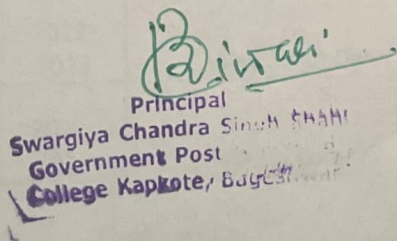 Principal
Swargiya Chandra Singh SHAHI
Government Post
College Kapkote, Bageshwar